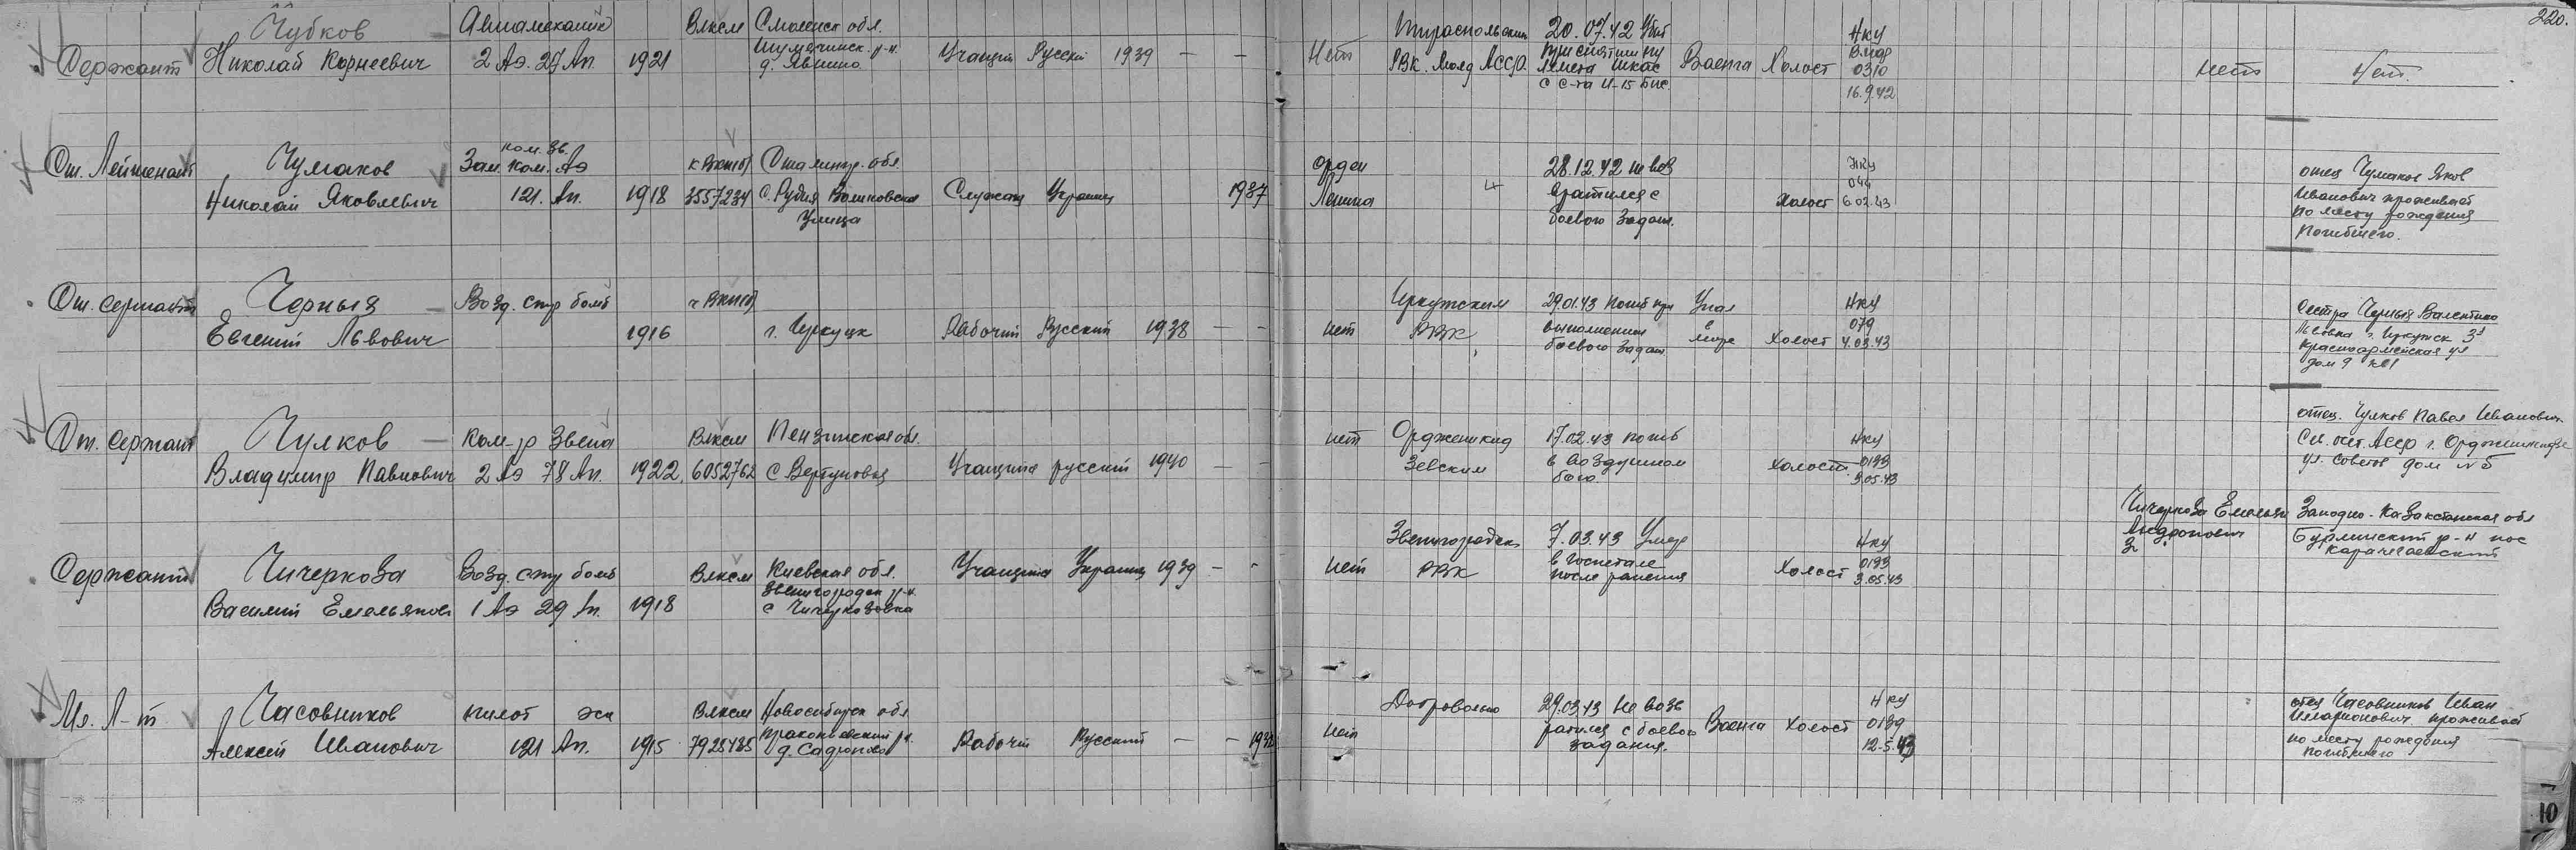 220.
Чубков Авиамеханик Влксм Смоленск обл. Тираспольским 20.07.42 Убит Нку
Сержант Николай Корнеевич 2 Аэ. 27 Ап. 1921 Шумячинск. р-н. Учащийся Русский 1939 — — Нет РВК. Молд АССР. при снятии пулемета Шкас Ваенга Холост 0310 нет Нет.
с с-та И-15 бис. 16.9.42
ком. зв.
Ст. Лейтенант Чумаков Зам. ком. Аэ к ВКП(б) Сталингр. обл. орден 28.12.42 не воз Нку отец Чумаков Яков
Николай Яковлевич 121. Ап. 1918 3557234 Служащ Украинец 1937 Ленина вратился с Холост 044 6.02.43 Иванович проживает
улица боевого задан. по месту рождения
погибшего.
Ст. сержант Черных Возд. стр бомб ч ВКП(б) Иркутским 29.01.43 Погиб при Упал Нку Сестра Черных Валентина
Евгений Львович 1916 г. Иркуцк Рабочий Русский 1938 — — нет РВК выполнении в Холост 079 Львовна г. Иркутск 3я
боевого задан. море 4.03.43 Красноармейская ул
дом 9
отец. Чулков Павел Иванович
Ст. Сержант Чулков Ком-р Звена Влксм Пензинская обл. нет Орджоникид 17.02.43 погиб Нку Сев. осет. Асср г. Орджоникидзе
Владимир Павлович 2 Аэ 78 Ап. 1922. 6052762 Учащийся русский 1940 — — зевским в воздушном Холост. 0193 ул. Советов дом № 5
бою. 3.05.43
Чичеркоза Емельян Западно-Казакстанская обл
Звенигородск. 7.03.43 Умер Нку Бурлинский р-н пос
Сержант Чичеркоза Возд. стр бомб Влксм Киевская обл. Учащийся Украинец 1939 — - нет РВК в госпитале Холост 0193 Карачегаевский
Звенигородск р-н. после ранения 3.05.43
Василий Емельянов 1 Аэ 29 Ап. 1918 с Чичеркозовка
Мл. Л-т Часовников пилот эск Влксм Новосибирск обл. Добровольно 29.03.43 Не возв Нку отец Часовников Иван
Алексей Иванович 121 Ап. 1915 7928485 Рабочий Русский — — нет ратился с боевого Ваенга Холост 0139 Иларионович проживает
задания. 12.5.43 по месту рождения
погибшего
10